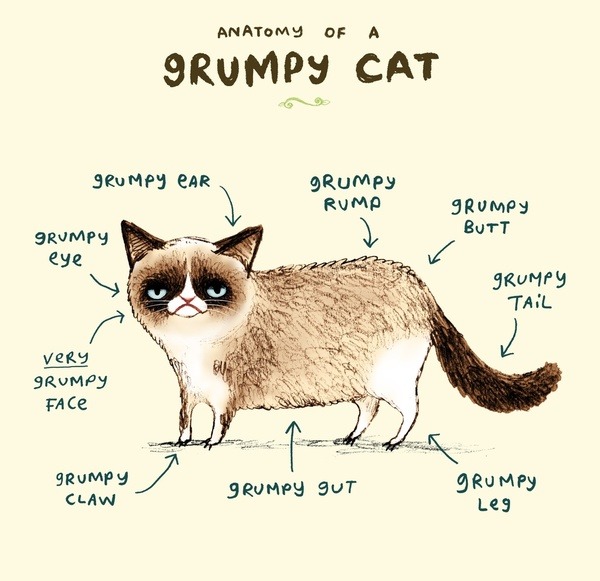 ANATOMY OF A
GRUMPY CAT
GRUMPY EAR
GRUMPY
RUMP
GRUMPY
BUTT
GRUMPY
EYE
GRUMPY
TAIL
VERY
GRUMPY
FACE
GRUMPY
CLAW
GRUMPY GUT
GRUMPY
LEG